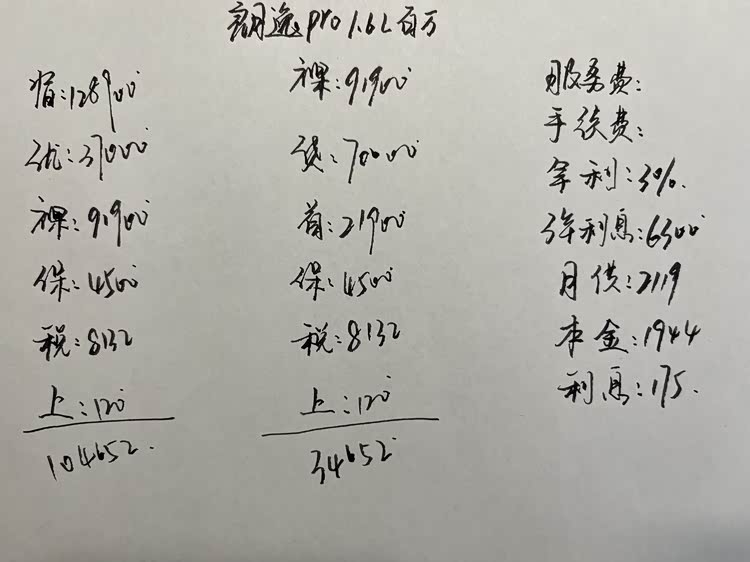 朗逸pro1.6L百万
指:128900
优:37000
裸:91900
保:4500
税:8132
上:120
104652.
裸:91900
贷:70000
首:21900
保:4500
税:8132
上:120
34652
服务费:
手续费:
年利:3%.
3年利息:6300
月供:2119
本金:1944
利息:175.